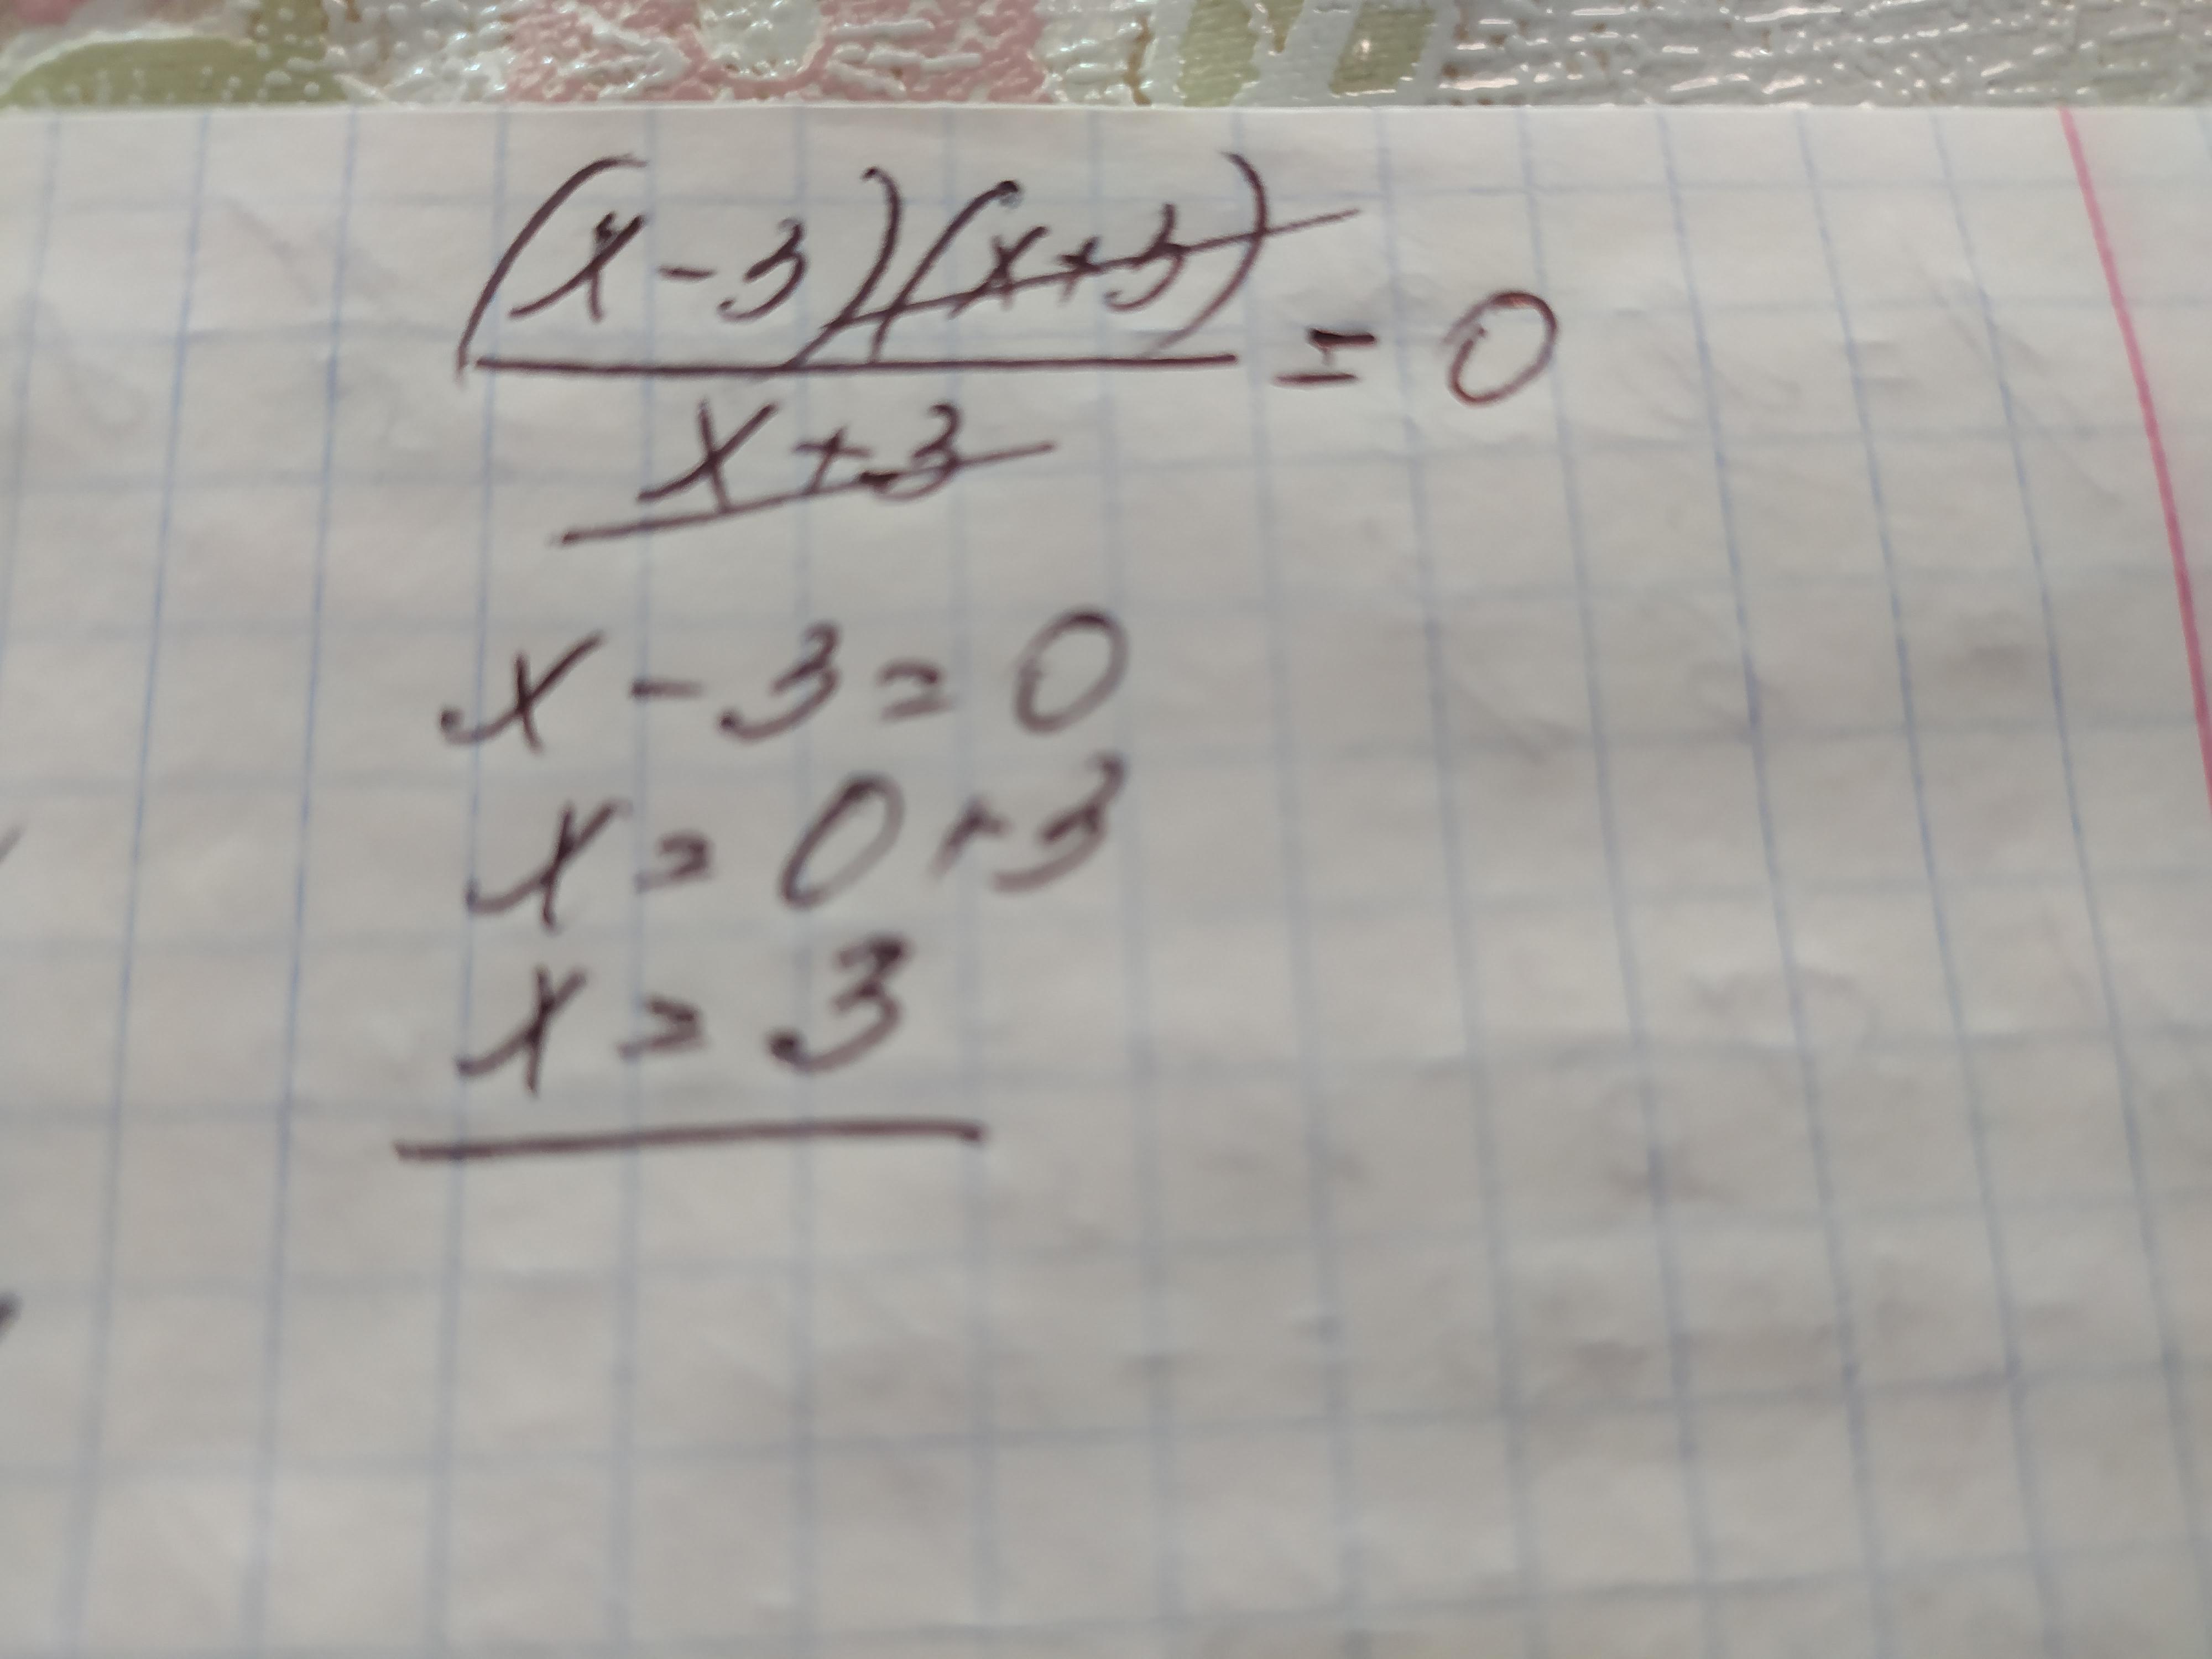 (x-3)(x+3)
/ x+3 = 0
x - 3 = 0
x = 0 + 3
x = 3